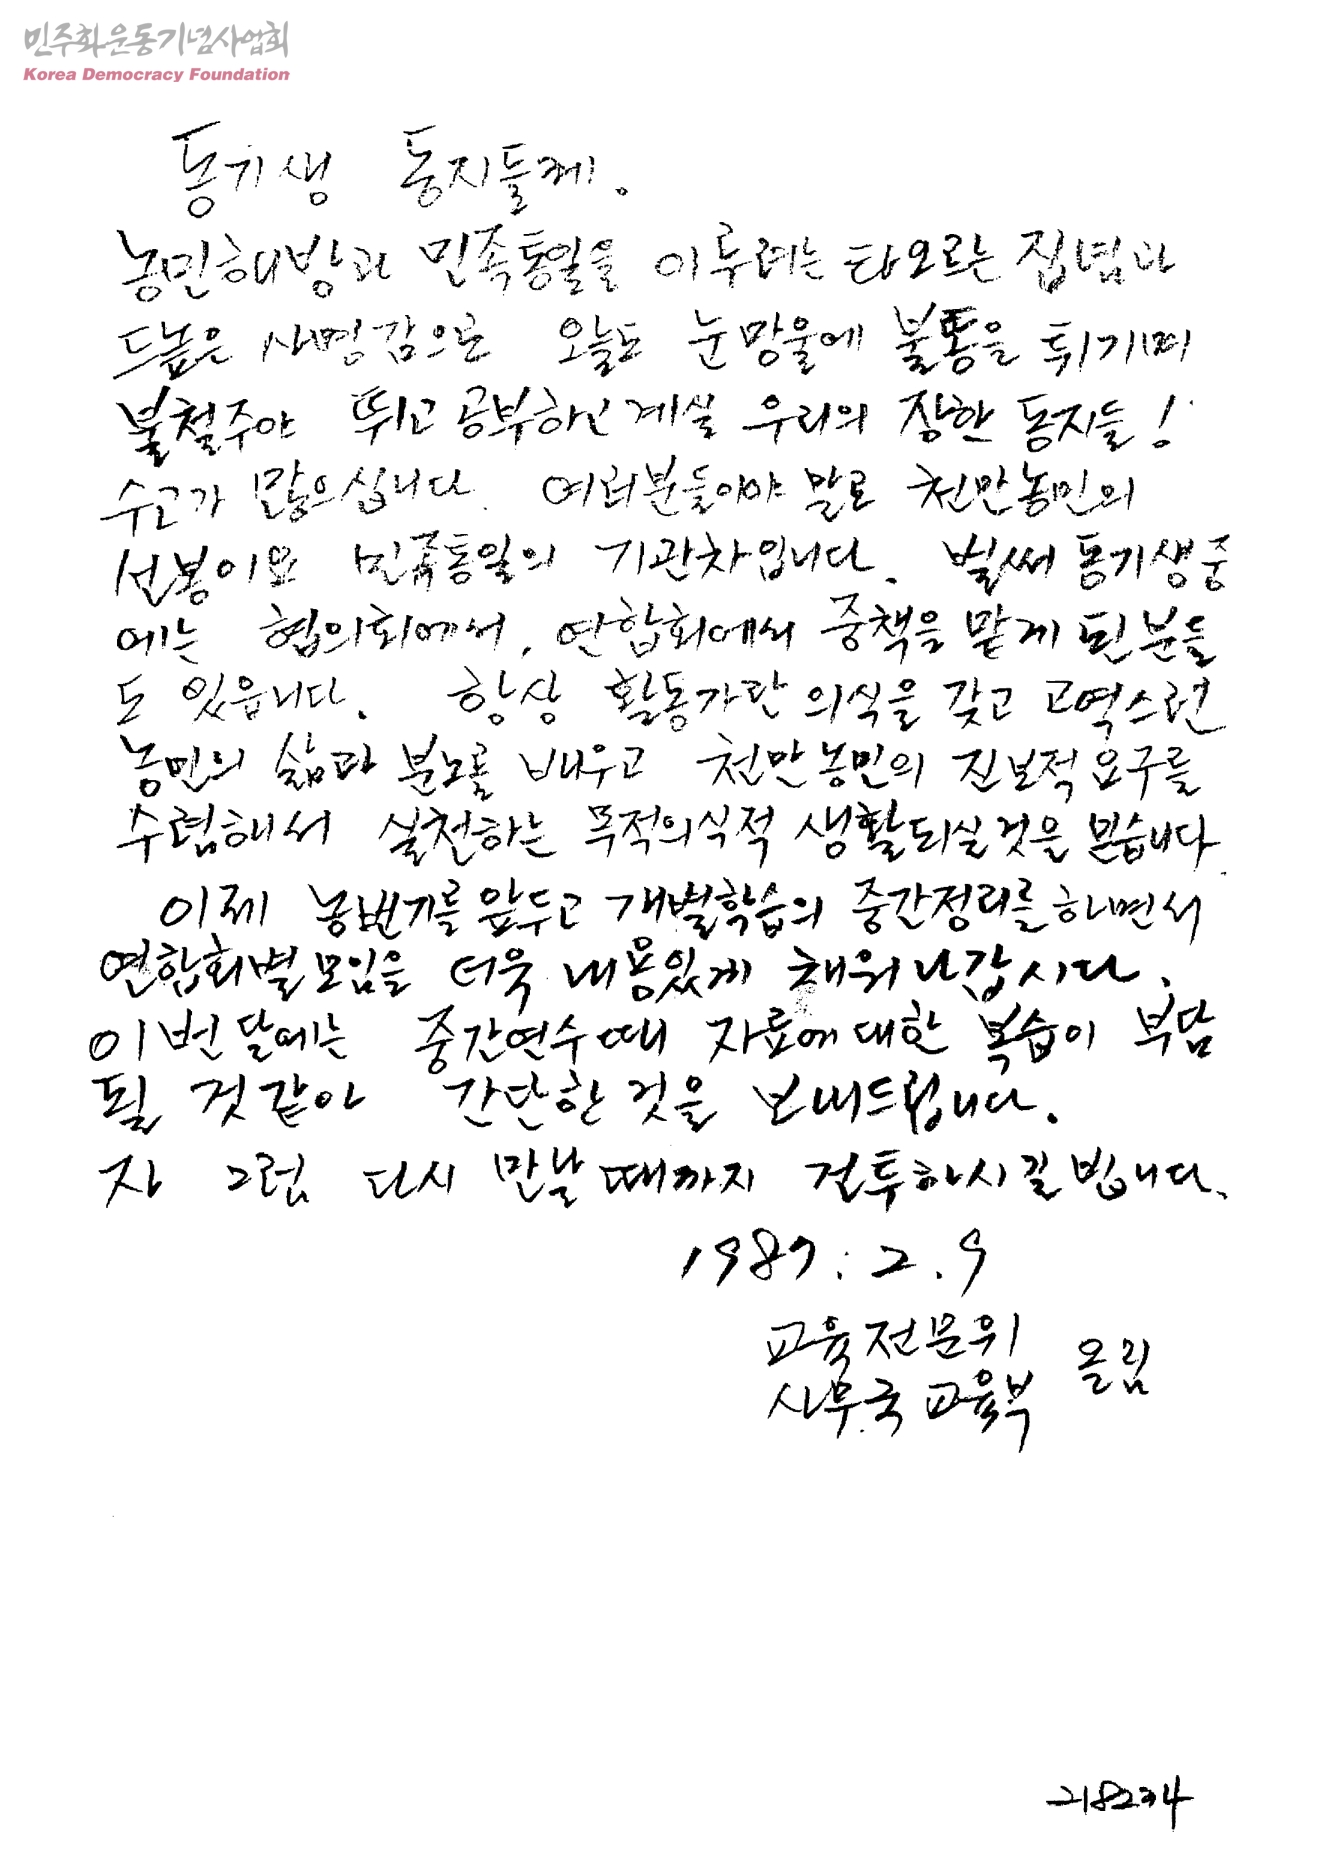 민주화운동기념사업회
Korea Democracy Foundation
동기생 동지들께.
농민해방과 민족통일을 이루려는 타오르는 집념과
드높은 사명감으로 오늘도 눈망울에 불똥을 튀기며
불철주야 뛰고 공부하고 계실 우리의 장한 동지들!
수고가 많으십니다. 여러분들이야 말로 천만농민의
선봉이요 민족통일의 기관차입니다. 벌써 동기생중
에는 협의회에서, 연합회에서 중책을 맡게 된 분들
도 있읍니다. 항상 활동가란 의식을 갖고 고역스런
농민의 삶과 분노를 배우고 천만농민의 진보적 요구를
수렴해서 실천하는 목적의식적 생활되실것을 믿습니다.
이제 농번기를 앞두고 개별학습의 중간정리를 하면서
연합회별 모임을 더욱 내용있게 채워 나갑시다.
이번 달에는 중간연수때 자료에 대한 복습이 부담
될 것 같아 간단한 것을 보내드립니다.
자 그럼 다시 만날 때까지 건투하시길 빕니다.
1989. 2. 9
교육전문위
사무국 교육부 올림
218234